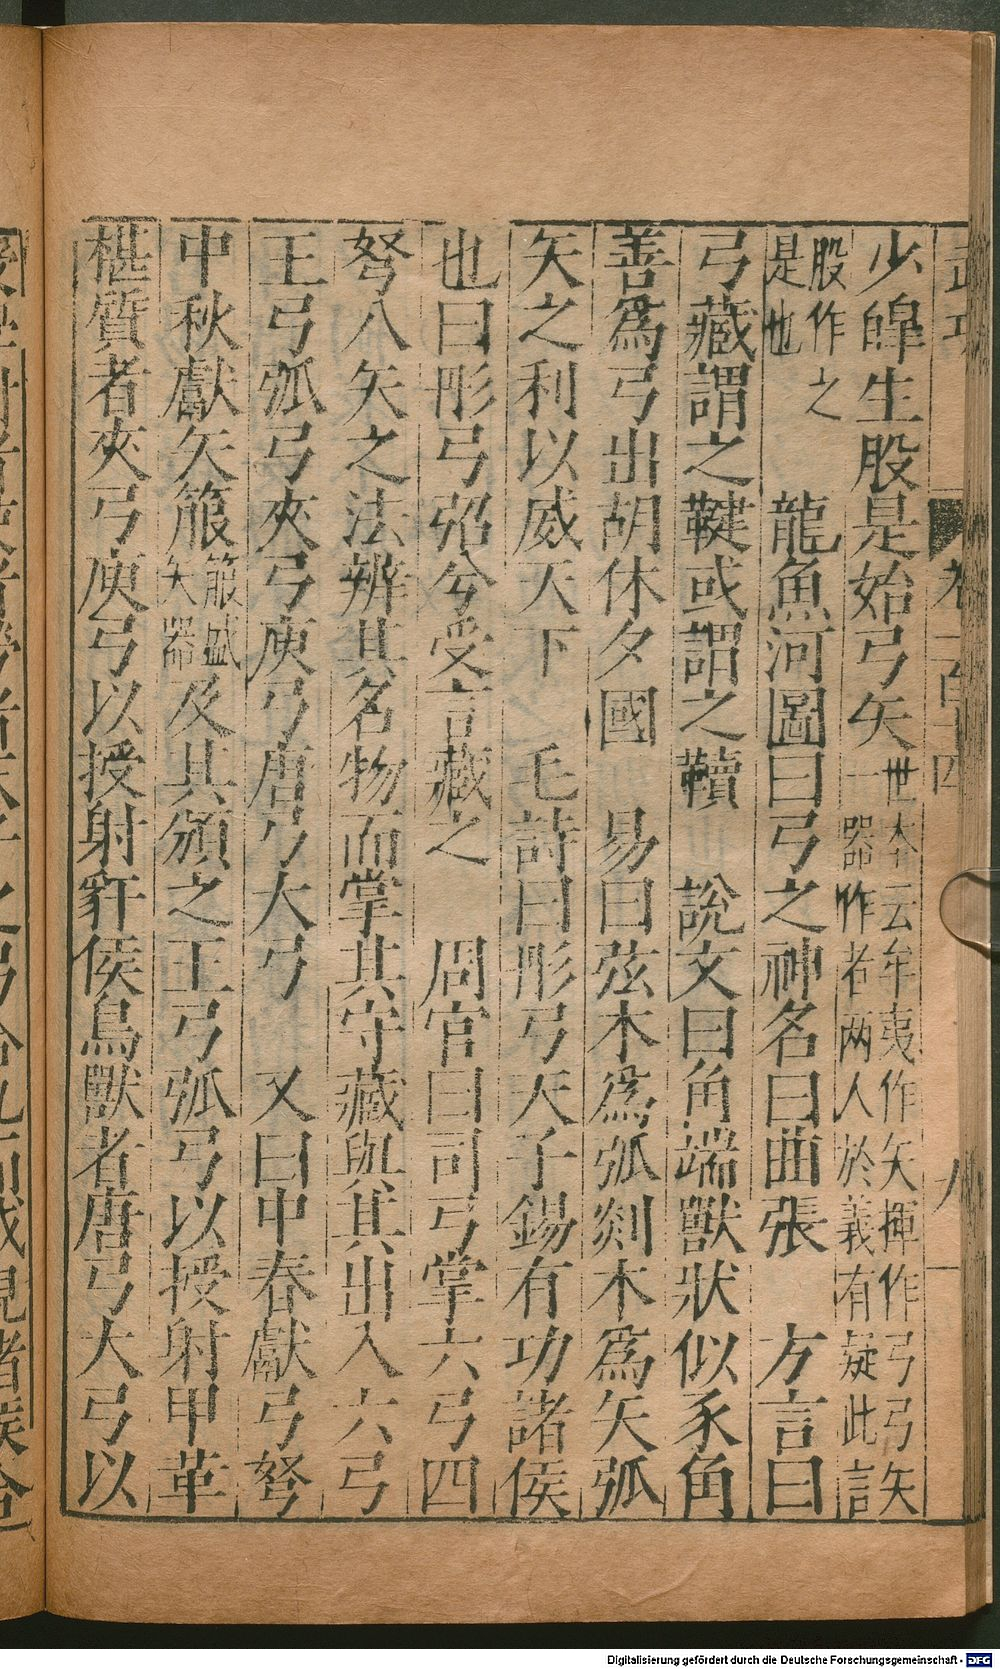 武功　卷一百四　八
少皥生股是始弓矢世本云牟夷作矢揮作弓弓矢一器作者两人於義有疑此言
股作之是也　龍魚河圖曰弓之神名曰曲張　方言曰
弓藏謂之鞬或謂之韥　說文曰角端獸狀似豕角
善爲弓出胡休夕國　易曰弦木爲弧剡木爲矢弧
矢之利以威天下　毛詩曰彤弓天子錫有功諸侯
也曰彤弓弨兮受言藏之　周官曰司弓掌六弓四
弩八矢之法辨其名物而掌其守藏與其出入六弓
王弓弧弓夾弓庾弓唐弓大弓　又曰中春獻弓弩
中秋獻矢箙箙盛矢器及其頒之王弓弧弓以授射甲革
椹質者夾弓庾弓以授射豻侯鳥獸者唐弓大弓以
Digitalisierung gefördert durch die Deutsche Forschungsgemeinschaft - DFG